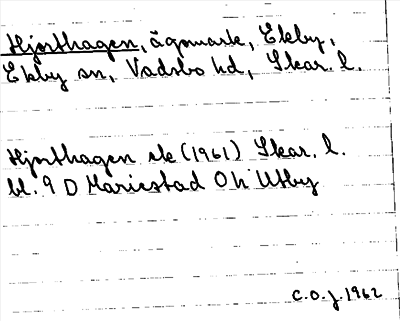 Hjorthagen, ägomark, Ekby,
Ekby sn, Vadsbo hd, Skar. l.
Hjorthagen ek (1961) Skar. l.
bl. 9 D Mariestad Utby
C.O.J. 1962